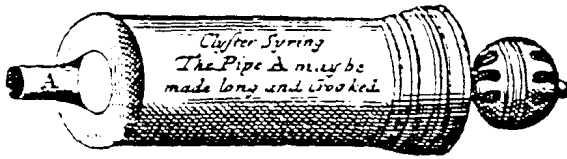 Clyſter Syring
The Pipe A may be
made long and Crooked
A